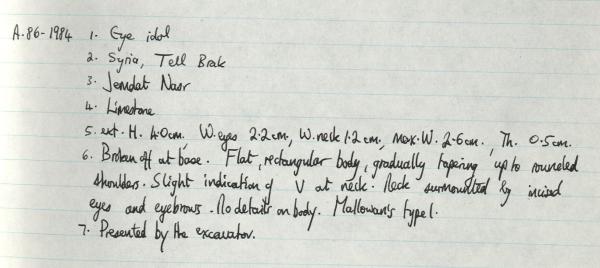 A.86-1984 1. Eye idol
2. Syria, Tell Brak
3. Jemdat Nasr
4. Limestone
5. ext. H. 4.0cm, W. eyes 2.2cm, W. neck 1.2cm, max. W. 2.6cm., Th. 0.5cm.
6. Broken off at base. Flat, rectangular body, gradually tapering up to rounded
shoulders. Slight indication of V at neck. Neck surmounted by incised
eyes and eyebrows. No details on body. Mallowan's type 1.
7. Presented by the excavator.